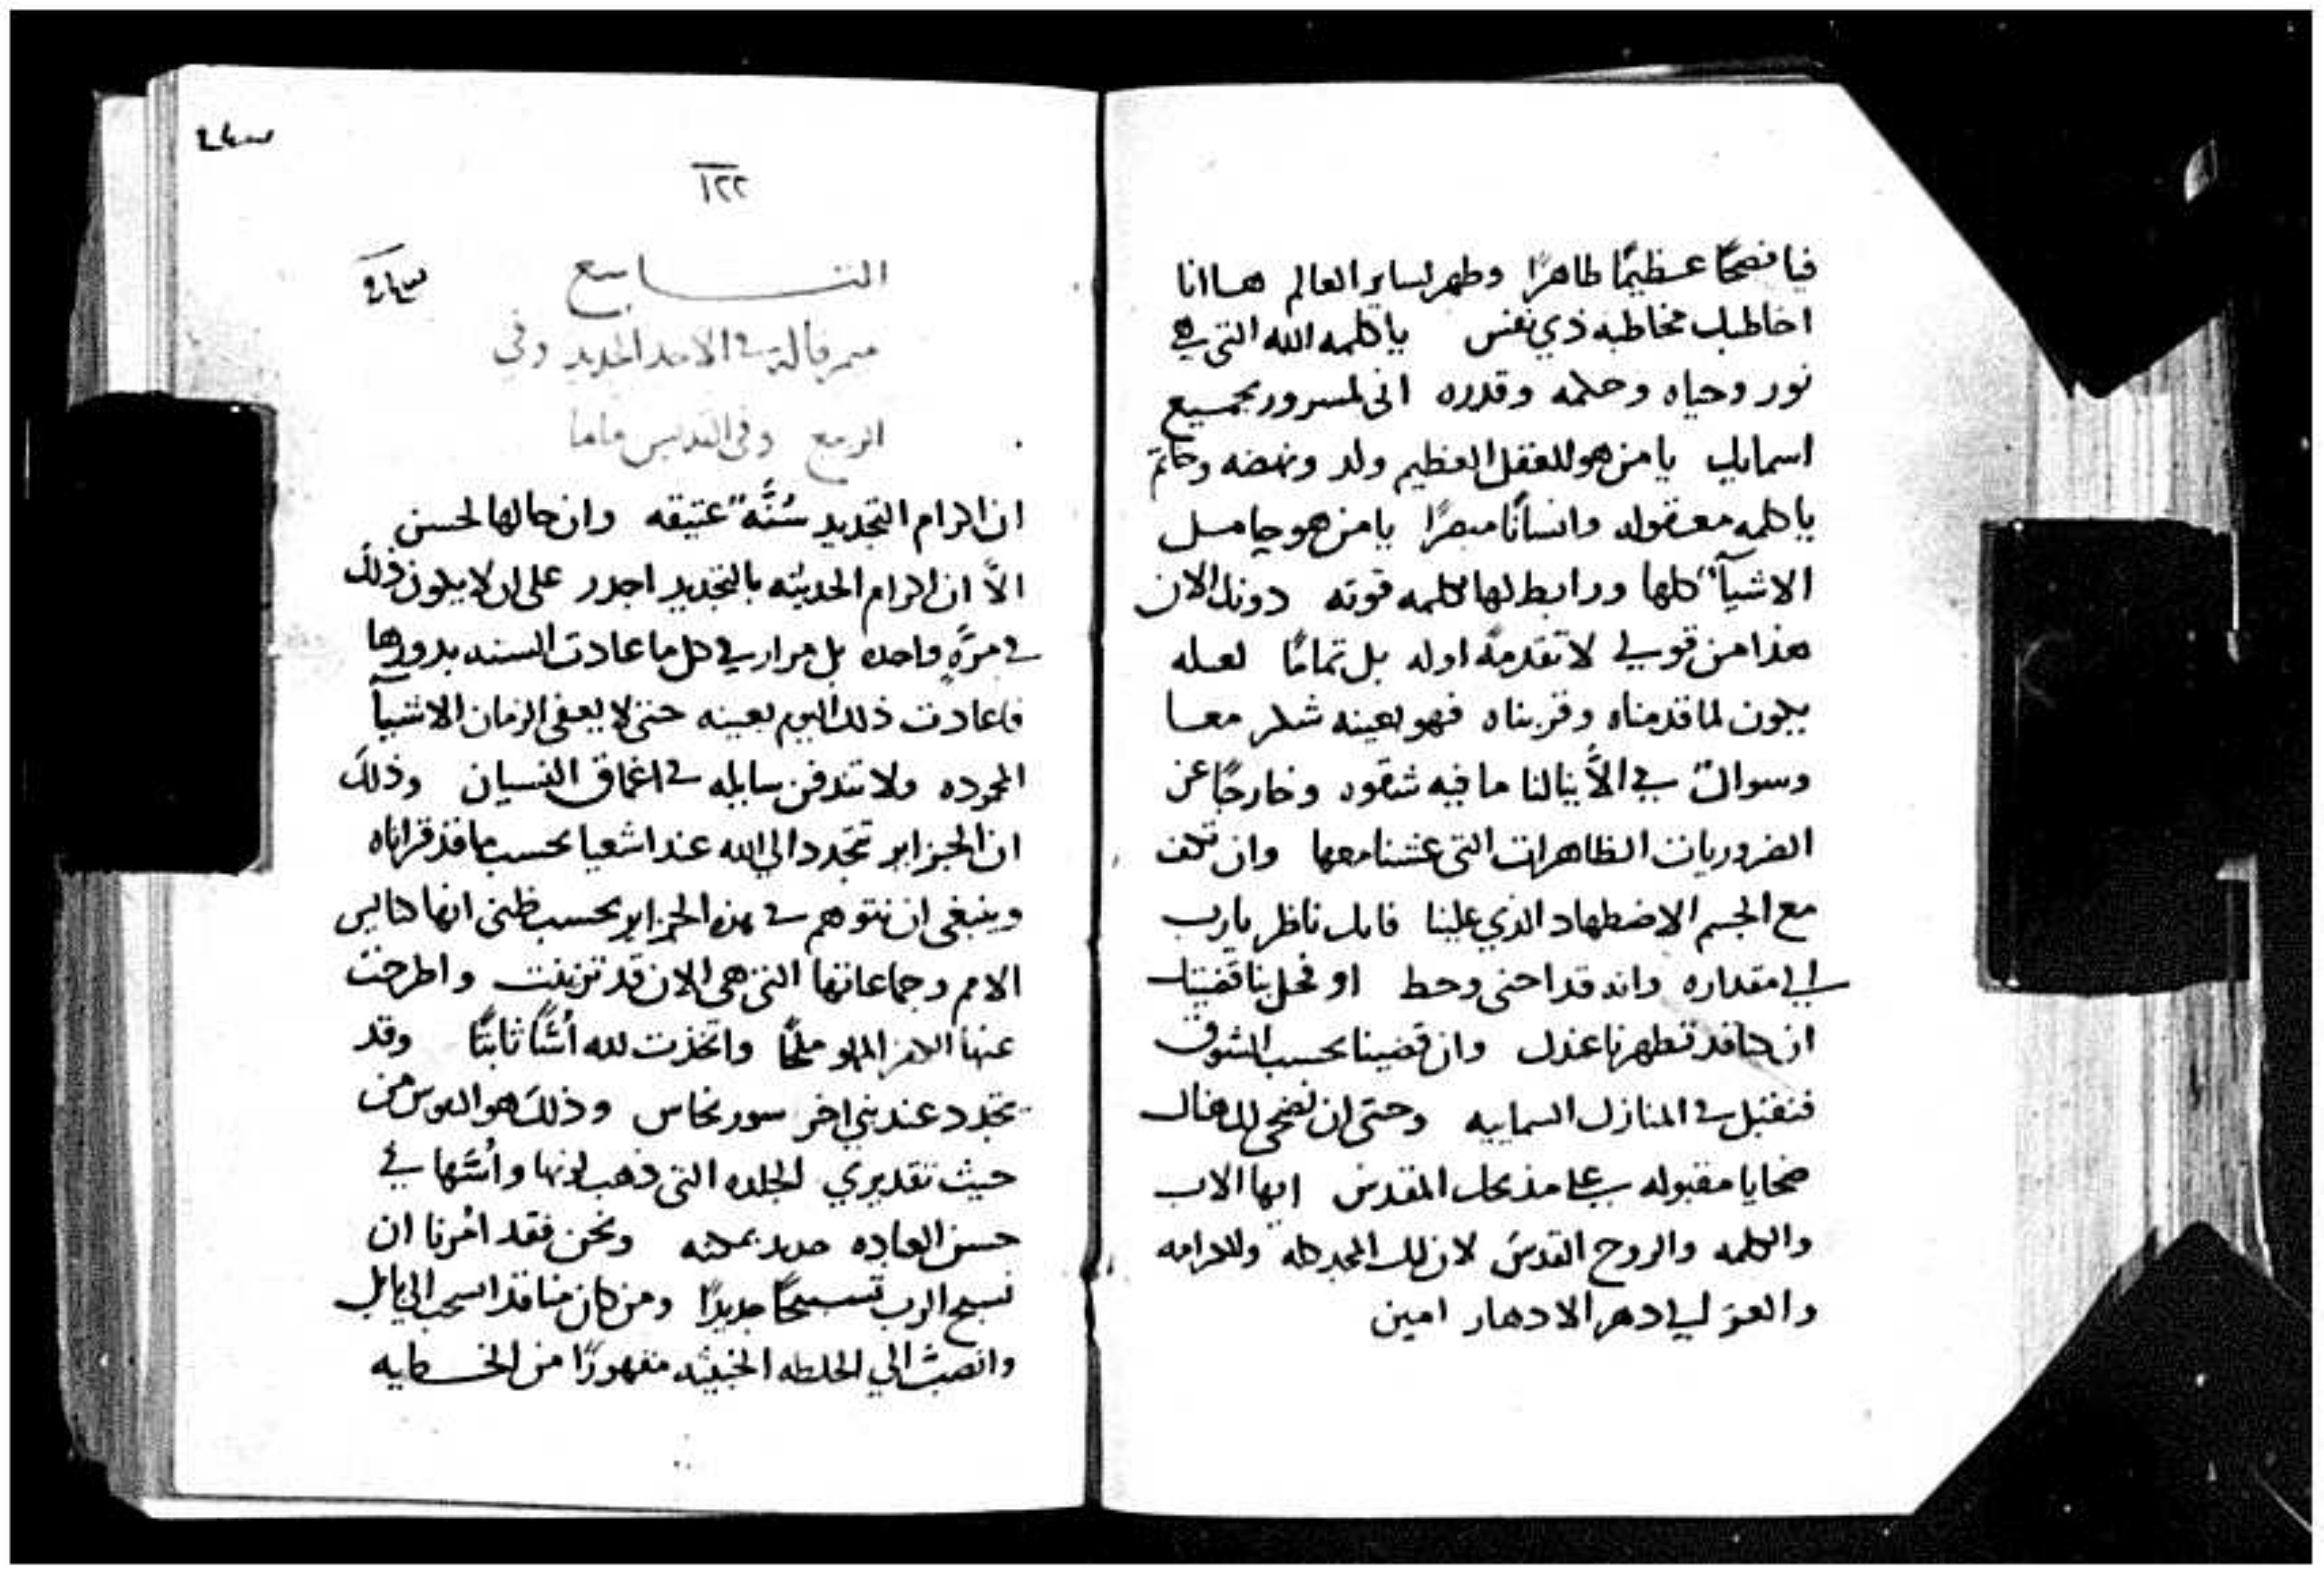 فيا فصحًا عظيمًا طاهرًا وطهر لساير العالم هاانا
اخاطبك مخاطبه ذي نفس ياكلمه الله التي هي
نور وحياه وحكمه وقدره اني لمسرور بجميع
اسمايك يا من هو للعقل العظيم ولد ونهضه وخاتم
ياكلمه معقوله وانسانًا مبصرًا يا من هو حامل
الاشيآ كلها ورابط لها بكلمه قوته دونك الان
هذا من قولي لا تقدمةً اوله بل تمامًا لعله
يكون لما قدمناه وقربناه فهو بعينه شكر معا
وسوال في الّا ينالنا ما فيه شقوه وخارجًا عن
الضروريات الظاهرات التي عشنا معها وان تكف
مع الجسم الاضطهاد الذي علينا فانك ناظر يارب
الي مقداره وانه قد احني وحط او تحل بنا قضيتك
ان كنا قد تطهرنا عندك وان قضينا بحسب الشوق
فنقتبل في المنازل السماييه وحتى ان نضحي لك هناك
ضحايا مقبوله علي مذبحك المقدس ايها الاب
والكلمه والروح القدس لان لك المجد كله وللكرامه
والعز الي دهر الادهار امين
١٢٢
التاسع
ميمر قاله في الاحد الجديد وفي
الربيع وفي القديس ماما
ان اكرام التجديد سُنَّه عتيقه وان حالها لحسن
الاّ ان اكرام الحديثه بالتجديد اجدر على ان لا يكون ذلك
في مرّةٍ واحده بل مرار في كل ما عادت السنه بدورها
فاعادت ذلك اليوم بعينه حتى لا يعفي الزمان الاشيآ
المحموده ولا تندفن سايله في اعماق النسيان وذلك
ان الجزاير تتجدد الي الله عند اشعيا بحسب ما قد قراناه
وينبغي ان نتوهم في هذه الجزاير بحسب ظني انها كنايس
الامم وجماعاتها التي هي الان قد تزينت واطرحت
عنها المملو ملحًا واتخذت لله اُسًّا ثابتًا وقد
يتجدد عند نبي اخر سور نحاس وذلك هو
حيث تقديري الجلده التي ذهب لونها واُسّها في
حسن العباده ونحن فقد اُمرنا ان
نسبح الرب تسبيحًا جديدًا ومن كان منا قد انسحب الي بابل
وانصبّ الي الخلطه الخبيثه مقهورًا من الخطايه